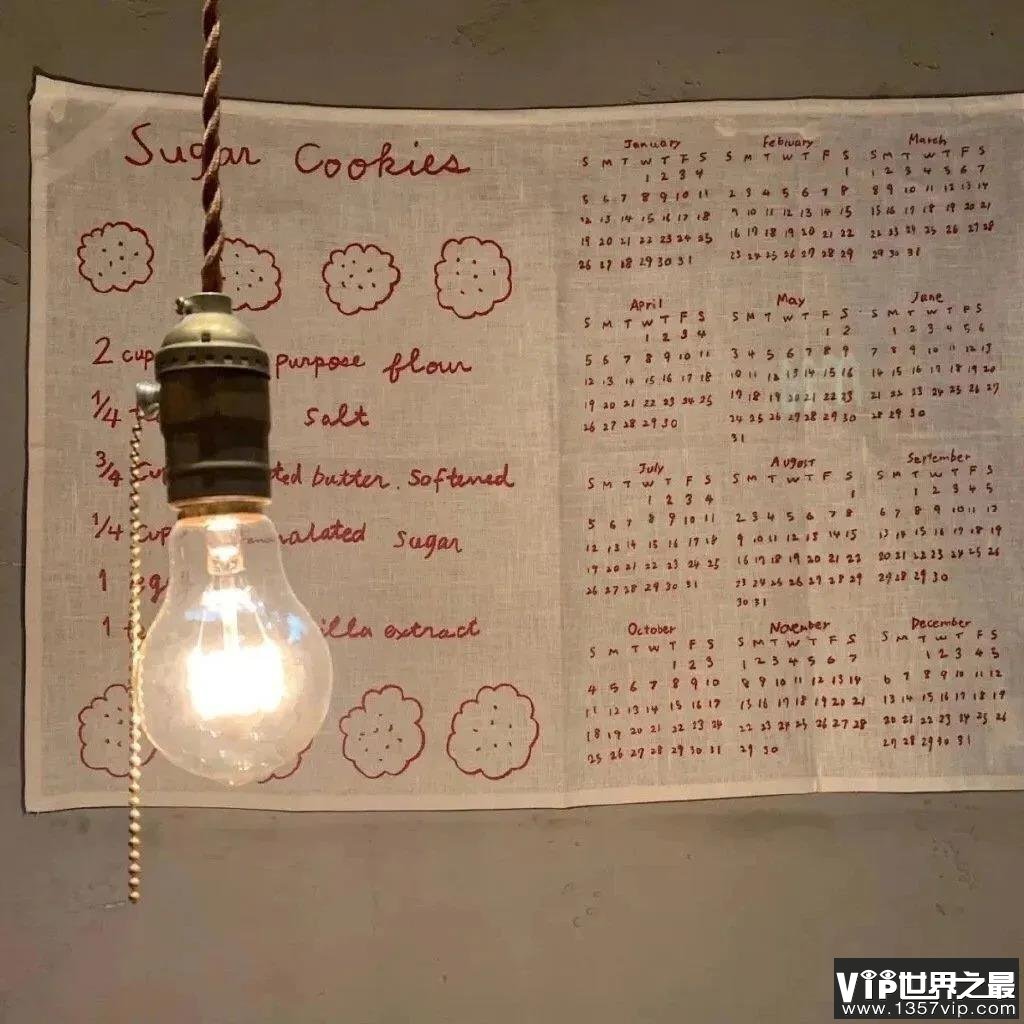 Sugar Cookies
2 cup purpose flour
1/4 salt
3/4 cu ted butter. Softened
1/4 cup nalated sugar
1 g
1 illa extract
January
S M T W T F S
1 2 3 4
5 6 7 8 9 10 11
12 13 14 15 16 17 18
19 20 21 22 23 24 25
26 27 18 29 30 31
February
S M T W T F S
1
2 3 4 5 6 7 8
9 10 11 12 13 14 15
16 17 18 19 20 21 22
23 24 25 26 27 28 29
March
S M T W T F S
1 2 3 4 5 6 7
8 9 10 11 12 13 14
15 16 17 18 19 20 21
22 23 24 25 26 27 28
29 30 31
April
S M T W T F S
1 2 3 4
5 6 7 8 9 10 11
12 13 14 15 16 17 18
19 20 21 22 23 24 25
26 27 28 29 30
May
S M T W T F S
1 2
3 4 5 6 7 8 9
10 11 12 13 14 15 16
17 18 19 20 21 22 23
24 25 26 27 28 29 30
31
June
S M T W T F S
1 2 3 4 5 6
7 8 9 10 11 12 13
14 15 16 17 18 19 20
21 22 23 24 25 26 27
28 29 30
July
S M T W T F S
1 2 3 4
5 6 7 8 9 10 11
12 13 14 15 16 17 18
19 20 21 22 23 24 25
26 27 28 29 30 31
August
S M T W T F S
1
2 3 4 5 6 7 8
9 10 11 12 13 14 15
16 17 18 19 20 21 22
23 24 25 26 27 28 29
30 31
September
S M T W T F S
1 2 3 4 5
6 7 8 9 10 11 12
13 14 15 16 17 18 19
20 21 22 23 24 25 26
27 28 29 30
October
S M T W T F S
1 2 3
4 5 6 7 8 9 10
11 12 13 14 15 16 17
18 19 20 21 22 23 24
25 26 27 28 29 30 31
November
S M T W T F S
1 2 3 4 5 6 7
8 9 10 11 12 13 14
15 16 17 18 19 20 21
22 23 24 25 26 27 28
29 30
December
S M T W T F S
1 2 3 4 5
6 7 8 9 10 11 12
13 14 15 16 17 18 19
20 21 22 23 24 25 26
27 28 29 30 31
VIP世界之最
www.1357vip.com